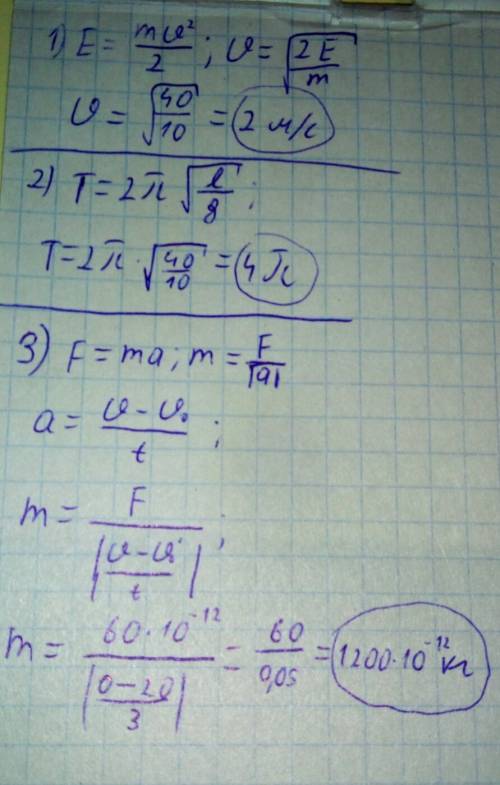 1) E = mυ²/2 ; υ = √(2E/m)
υ = √(40/10) = 2 м/с
2) T = 2π √(l/g) ;
T = 2π · √(40/10) = 4π
3) F = ma ; m = F/|a|
a = (υ - υ₀)/t ;
m = F/|(υ - υ₀)/t| ;
m = 60·10⁻¹²/|(0 - 20)/3| = 60/0,05 = 1200·10⁻¹² кг